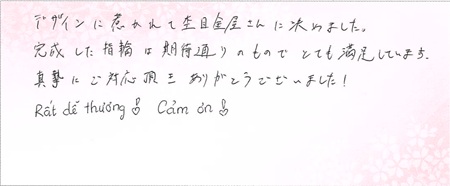 デザインに惹かれて杢目金屋さんに決めました。
完成した指輪は期待通りのものでとても満足しています。
真摯にご対応頂き ありがとうございました!
Rất dễ thương Cảm ơn